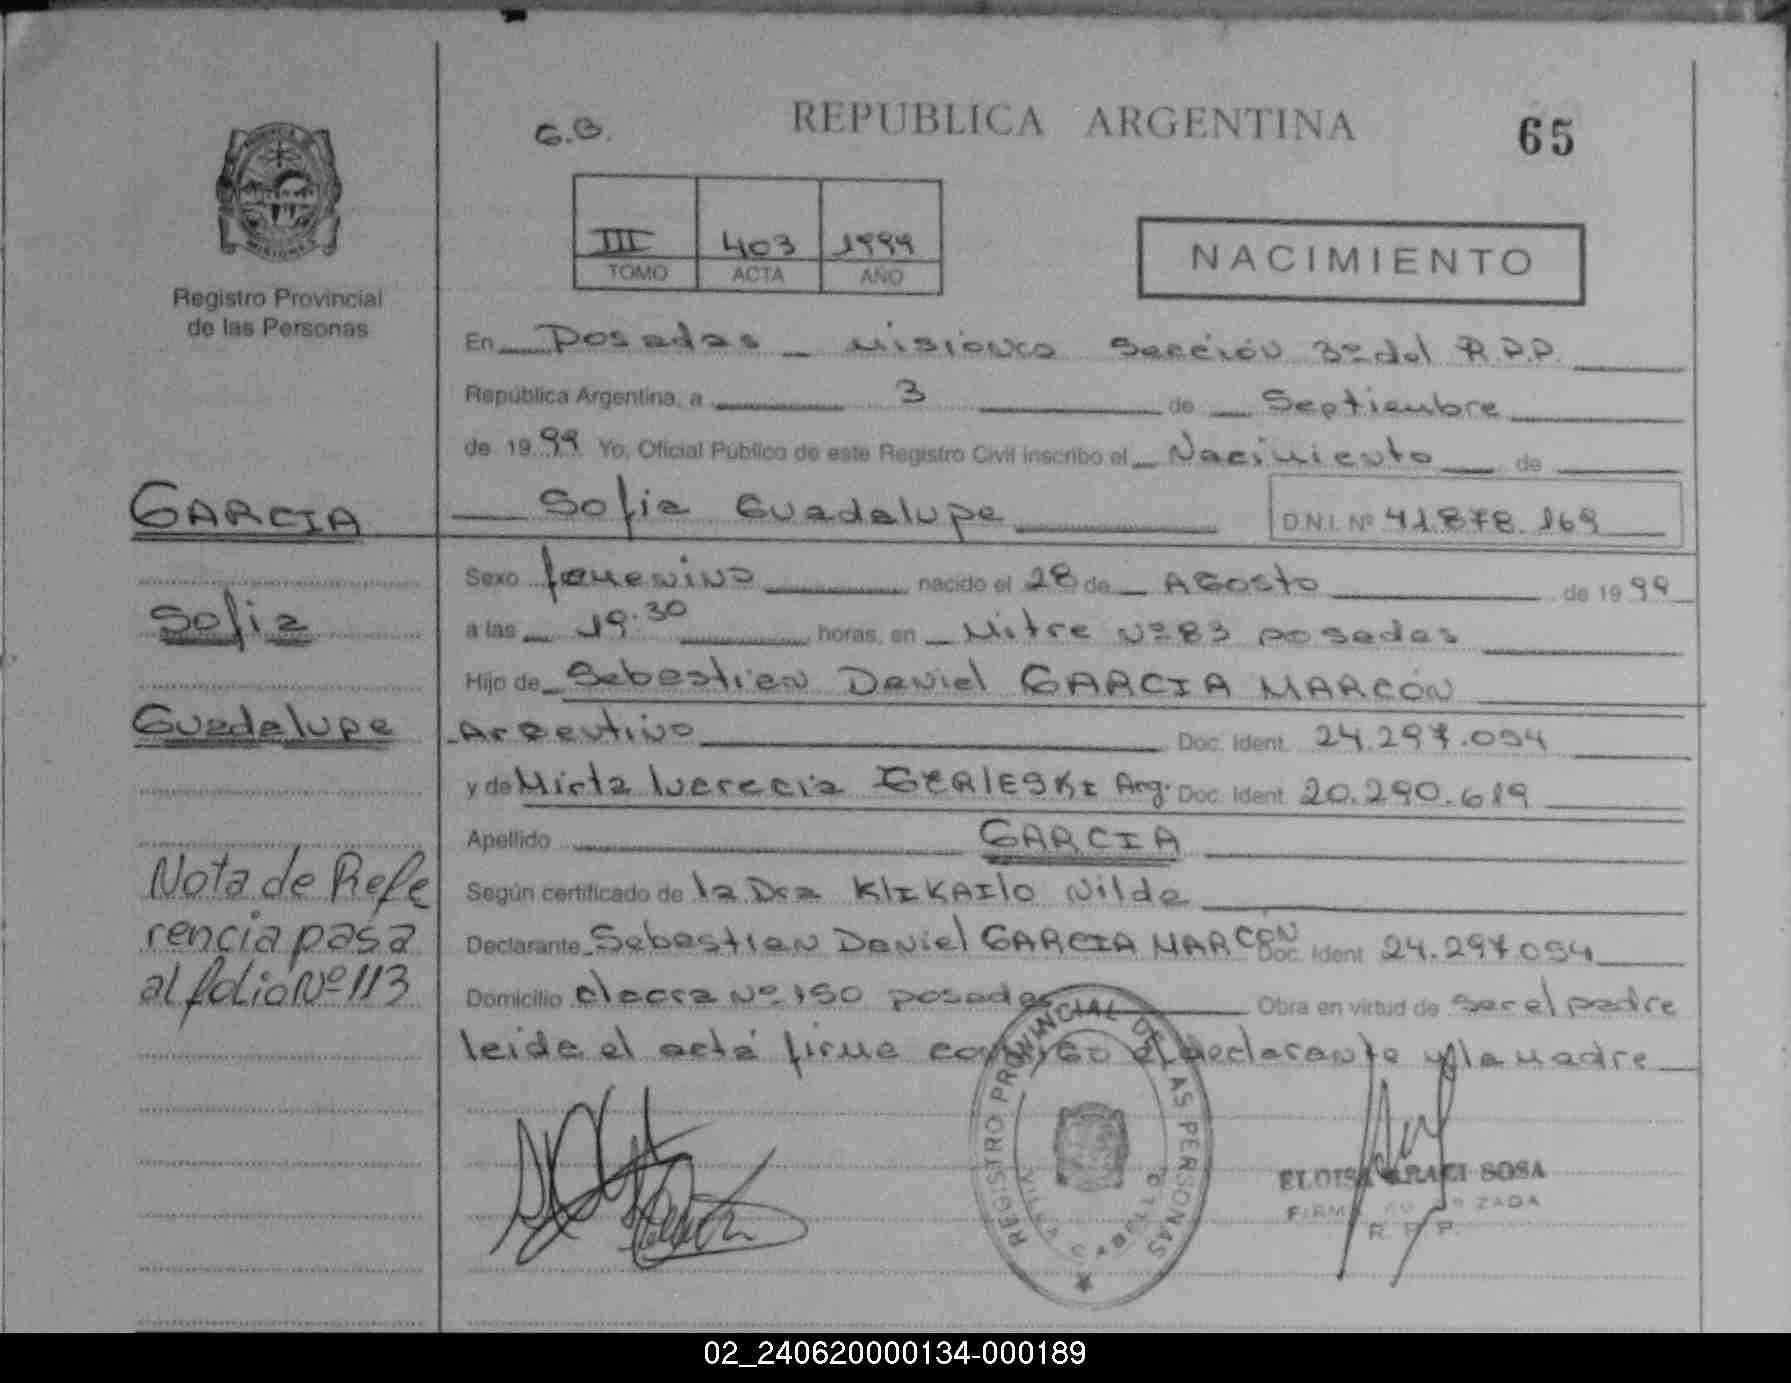 G.B.
REPUBLICA ARGENTINA
65
III 403 1999
TOMO ACTA AÑO
NACIMIENTO
Registro Provincial
de las Personas
En Posadas - Misiones Sección 3º del R.P.P.
República Argentina, a 3 de Septiembre
de 1999 Yo, Oficial Público de este Registro Civil inscribo el Nacimiento de
GARCIA
Sofia Guadalupe D.N.I. Nº 41.878.169
Sexo femenino nacido el 28 de Agosto de 1999
Sofia
a las 19.30 horas, en Mitre Nº 83 posadas
Hijo de Sebastian Daniel GARCIA MARCÓN
Guadalupe
Argentino Doc. Ident. 24.297.054
y de Mirta Lucrecia Arg. Doc. Ident. 20.290.619
Apellido GARCIA
Nota de Refe
rencia pasa
al folio Nº 113
Según certificado de la Dra KLIKAILO Nilda
Declarante Sebastian Daniel GARCIA MARCON Doc. Ident. 24.297.054
Domicilio chacra Nº 150 posadas Obra en virtud de ser el padre
leida el acta firma conmigo el declarante y la madre
REGISTRO PROVINCIAL DE LAS PERSONAS
VILLA CABELLO
ELOISA ARACI SOSA
FIRMA AUTORIZADA
R. P. P.
02_240620000134-000189